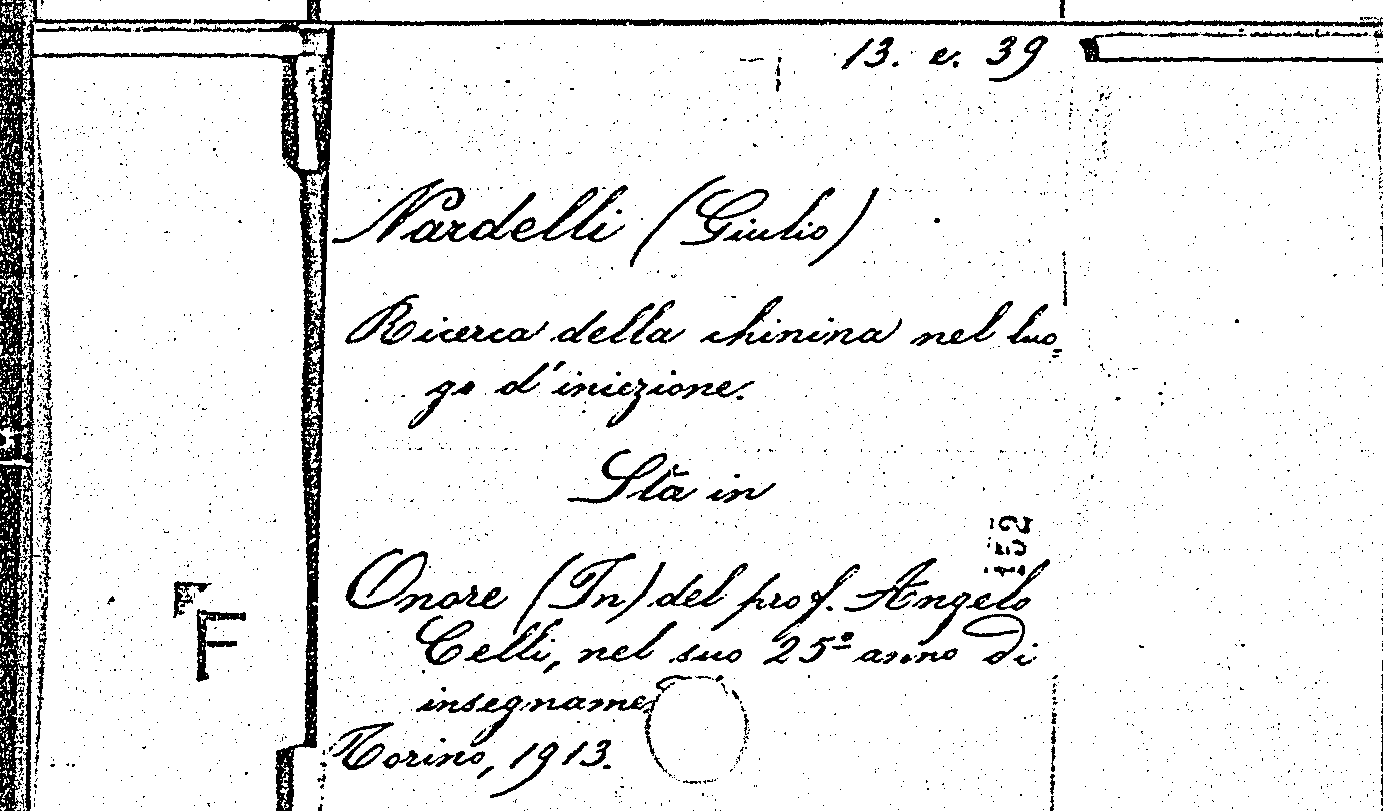 13. e. 39
Nardelli (Giulio)
Ricerca della chinina nel luo=
go d'iniezione.
Sta in
152
Onore (In) del prof. Angelo
Celli, nel suo 25º anno di
insegname
Torino, 1913.
F